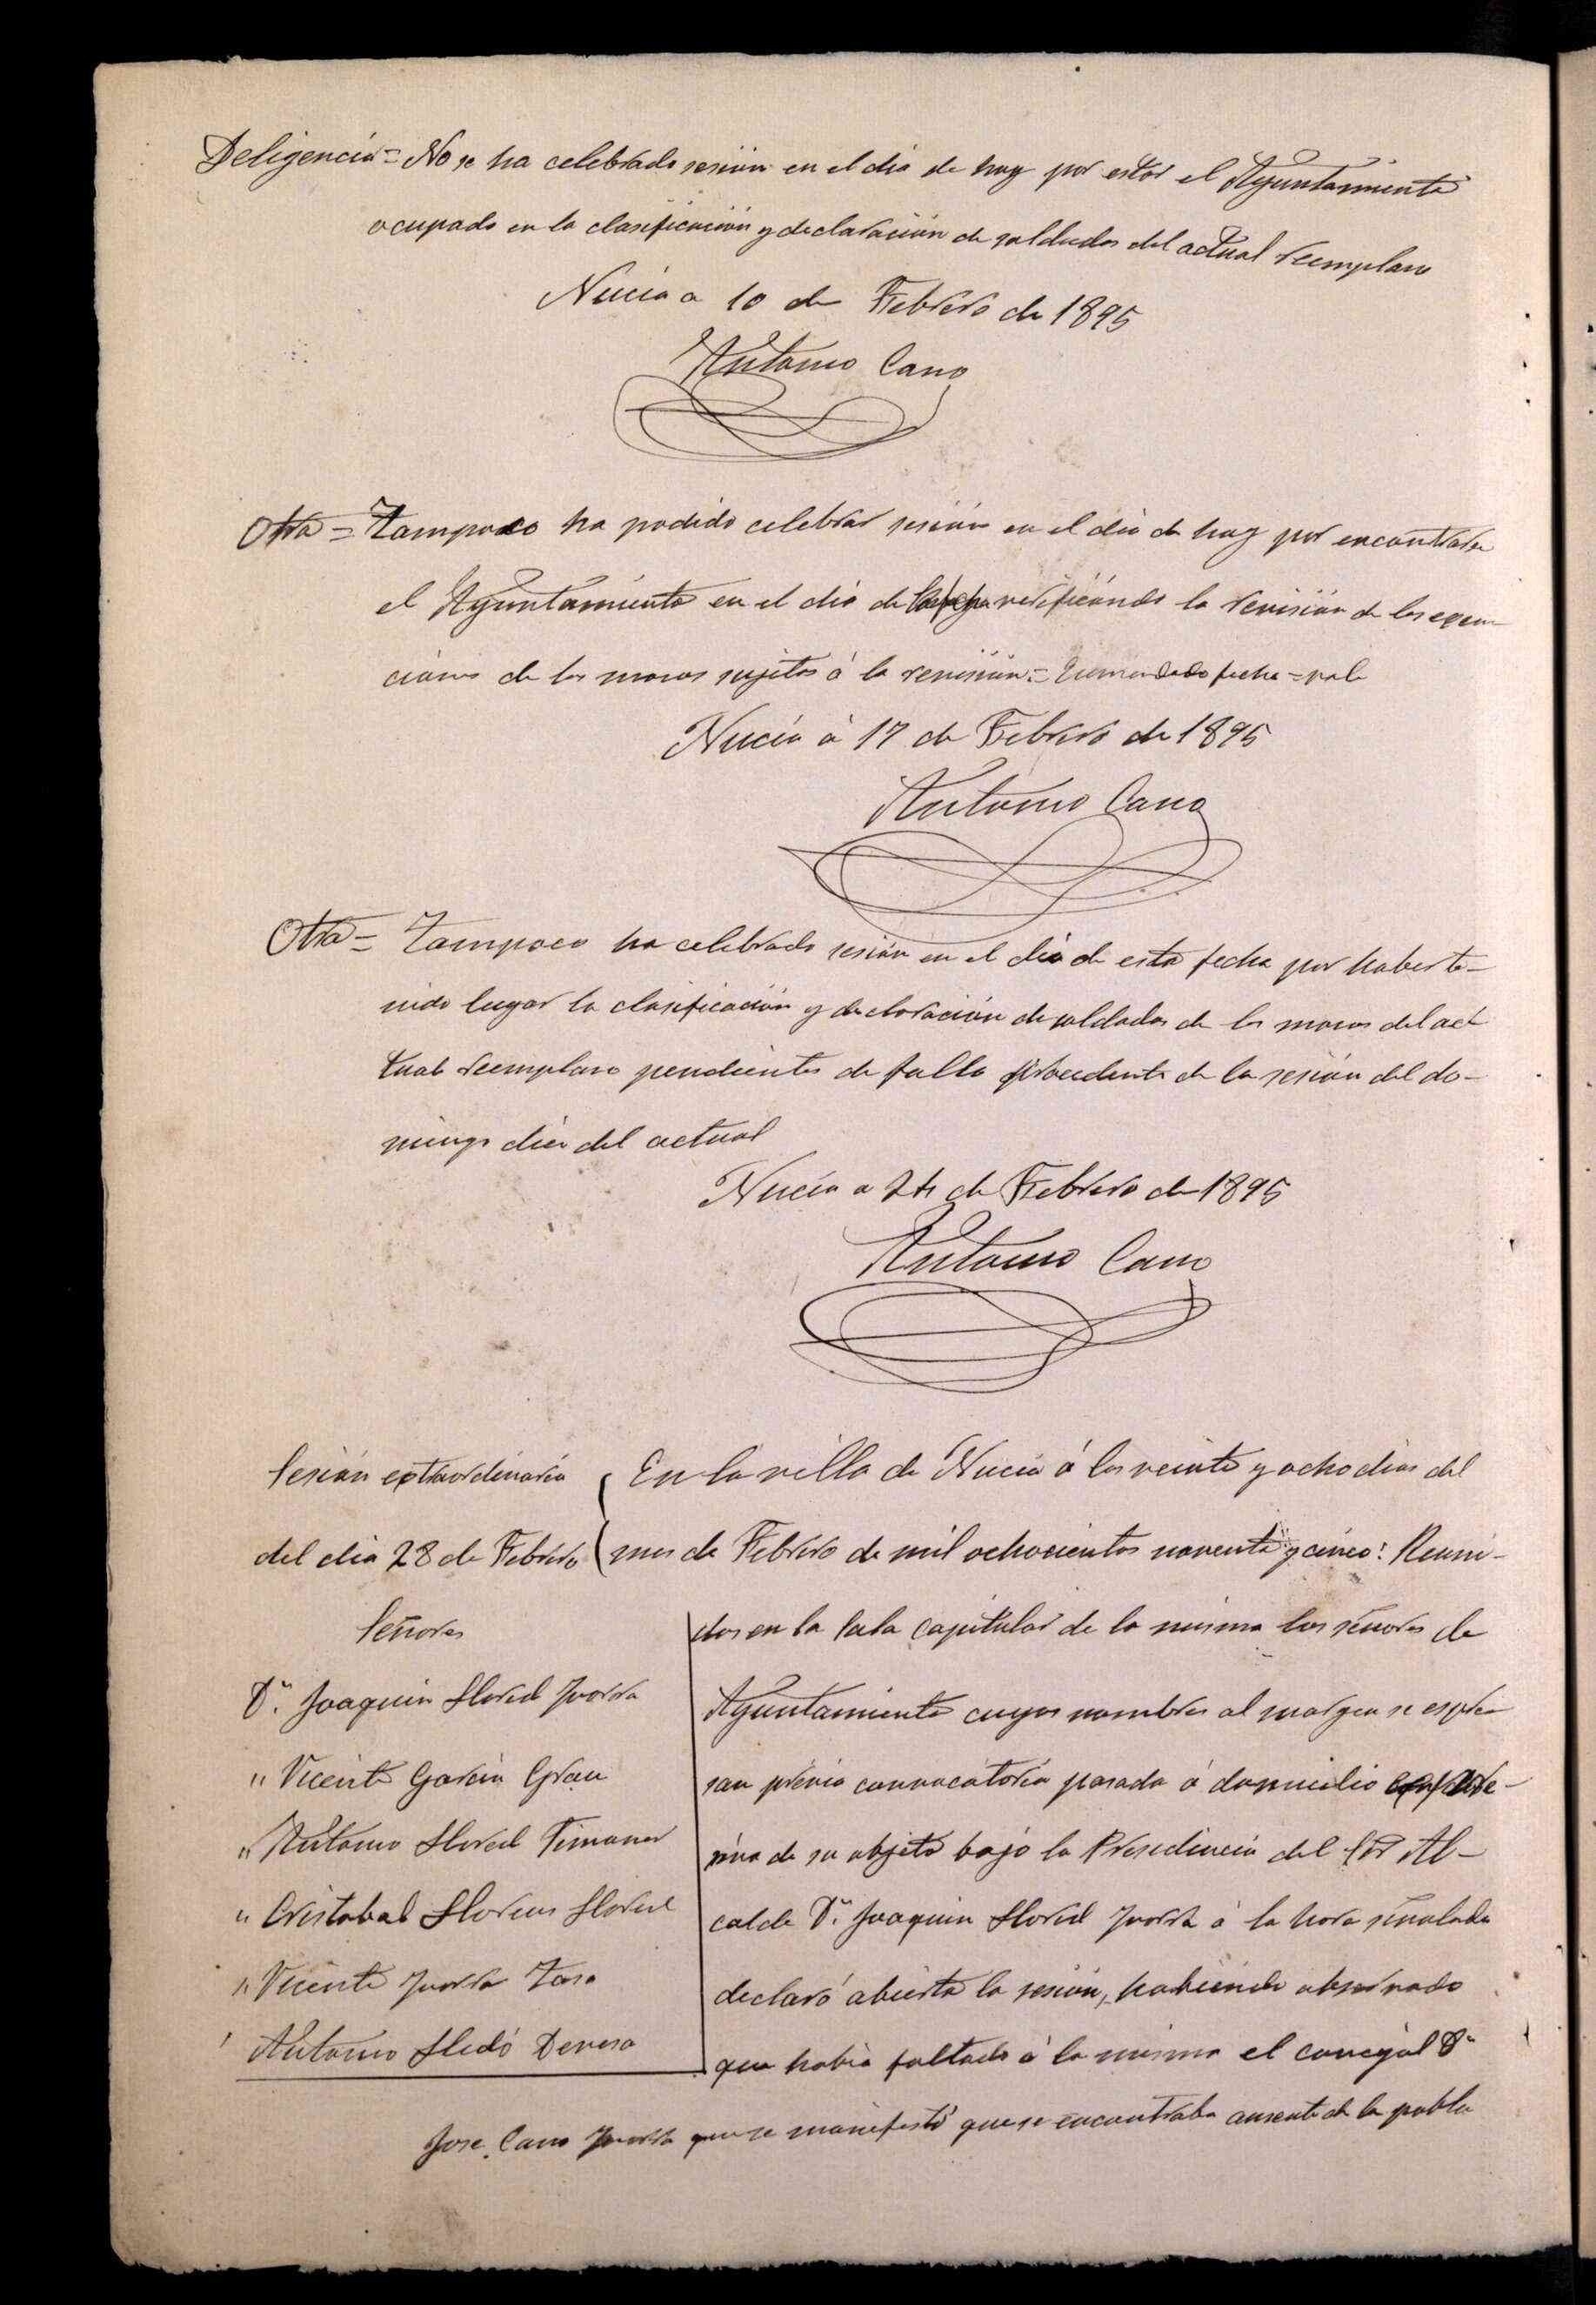 Deligencia = No se ha celebrado sesión en el dia de hoy por estar el Ayuntamiento
ocupado en la clasificación y declaración de soldados del actual reemplazo
Nucia a 10 de Febrero de 1895
Antonio Cano
Otra = Tampoco ha podido celebrar sesión en el dia de hoy por encontrarse
el Ayuntamiento en el dia de verificando la revisión de las exen-
ciones de los mozos sujetos á la revisión = Enmendado fecha = vale
Nucia á 17 de Febrero de 1895
Antonio Cano
Otra = Tampoco ha celebrado sesión en el dia de esta fecha por haber te-
nido lugar la clasificación y declaración de soldados de los mozos del ac-
tual reemplazo pendientes de fallo procedente de la sesión del do-
mingo diez del actual
Nucia a 24 de Febrero de 1895
Antonio Cano
Sesión extraordinaria
del dia 28 de Febrero
Señores
Dn. Joaquin Llored Yvorra
" Vicente Garcia Grau
" Antonio Llored Timoner
" Cristobal Llorens Llored
" Vicente Yvorra
Antonio Lledó Devesa
En la villa de Nucia á los veinte y ocho dias del
mes de Febrero de mil ochocientos noventa y cinco: Reuni-
dos en la Sala Capitular de la misma los señores de
Ayuntamiento cuyos nombres al margen se espre
san prévia convocatoria pasada á domicilio
siva de su objeto bajo la Presidencia del Sor Al-
calde Dn. Joaquin Llored Yvorra á la hora señalada
declaró abierta la sesión, habiendo observado
que habia faltado á la misma el concejal Dn
Jose Cano Yvorra que se manifestó que se encontraba ausente de la pobla